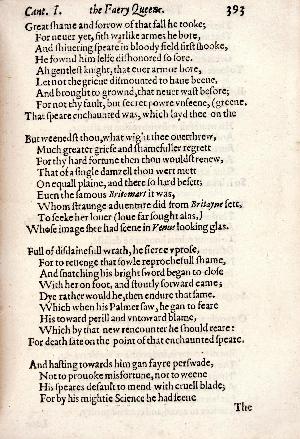 Cant. I. the Faery Queene. 393
Great shame and sorrow of that fall he tooke;
For neuer yet, sith warlike armes he bore,
And shiuering speare in bloody field first shooke,
He fownd him selfe dishonored so sore.
Ah gentlest knight, that euer armor bore,
Let not thee grieue dismounted to haue beene,
And brought to grownd, that neuer wast before;
For not thy fault, but secret powre vnseene, (greene.
That speare enchaunted was, which layd thee on the
But weenedst thou, what wight thee ouerthrew,
Much greater griefe and shamefuller regrett
For thy hard fortune then thou wouldst renew,
That of a single damzell thou wert mett
On equall plaine, and there so hard besett;
Euen the famous Britomart it was,
Whom straunge aduenture did from Britayne fett,
To seeke her louer (loue far sought alas,)
Whose image shee had seene in Venus looking glas.
Full of disdainefull wrath, he fierce vprose,
For to reuenge that fowle reprochefull shame,
And snatching his bright sword began to close
With her on foot, and stoutly forward came;
Dye rather would he, then endure that same.
Which when his Palmer saw, he gan to feare
His toward perill and vntoward blame,
Which by that new rencounter he should reare:
For death sate on the point of that enchaunted speare.
And hasting towards him gan fayre perswade,
Not to prouoke misfortune, nor to weene
His speares default to mend with cruell blade;
For by his mightie Science he had seene
The